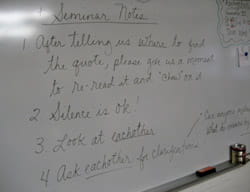 Seminar Notes
1 After telling us where to find
the quote, please give us a moment
to re-read it and "chew" on it
2 Silence is ok!
3. Look at eachother
4 Ask eachother for clarifications
Can anyone
what he meant by